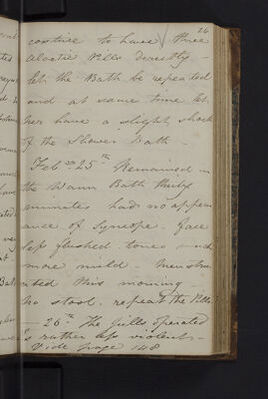 26
costive to have three
Aloetic Pills directly
let the Bath be repeated
and at same time let
her have a slight shock
of the Shower Bath
Feb 25th Remained in
the Warm Bath thirty
minutes had no appear
ance of Syncope. face
less flushed tones much
more mild. Menstru
ated this morning
No stool. repeat the Pills
26th The pills operated
rather less violent
Vide page 148